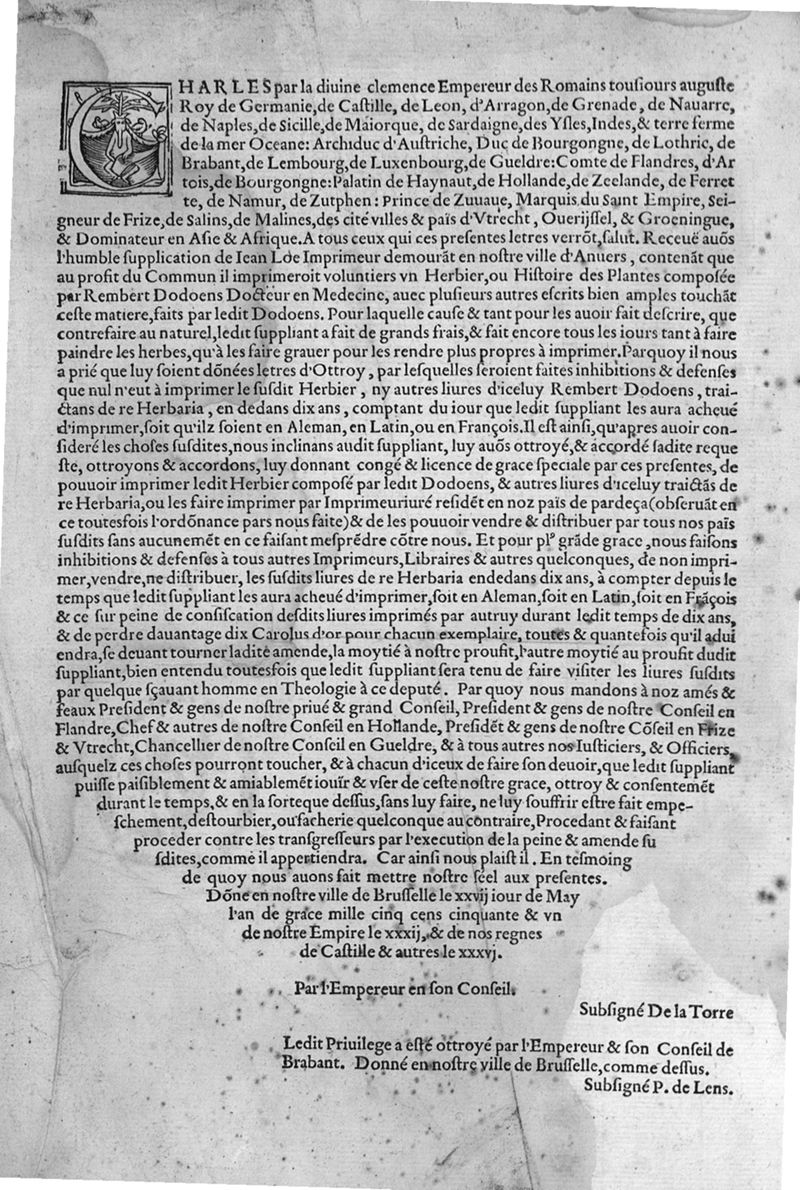 CHARLES par la diuine clemence Empereur des Romains tousiours auguste
Roy de Germanie, de Castille, de Leon, d'Arragon, de Grenade, de Nauarre,
de Naples, de Sicille, de Maiorque, de Sardaigne, des Ysles, Indes, & terre ferme
de la mer Oceane: Archiduc d'Austriche, Duc de Bourgongne, de Lothric, de
Brabant, de Lembourg, de Luxenbourg, de Gueldre: Comte de Flandres, d'Ar
tois, de Bourgongne: Palatin de Haynaut, de Hollande, de Zeelande, de Ferret
te, de Namur, de Zutphen: Prince de Zuuaue, Marquis du Saint Empire, Sei-
gneur de Frize, de Salins, de Malines, des cité villes & païs d'Vtrecht, Ouerijssel, & Groeningue,
& Dominateur en Asie & Afrique. A tous ceux qui ces presentes letres verrõt, salut. Receuë auõs
l'humble supplication de Iean Loe Imprimeur demourãt en nostre ville d'Anuers, contenãt que
au profit du Commun il imprimeroit voluntiers vn Herbier, ou Histoire des Plantes composée
par Rembert Dodoens Docteur en Medecine, auec plusieurs autres escrits bien amples touchãt
ceste matiere, faits par ledit Dodoens. Pour laquelle cause & tant pour les auoir fait descrire, que
contrefaire au naturel, ledit suppliant a fait de grands frais, & fait encore tous les iours tant à faire
paindre les herbes, qu'à les faire grauer pour les rendre plus propres à imprimer. Parquoy il nous
a prié que luy soient dõnées letres d'Ottroy, par lesquelles seroient faites inhibitions & defenses
que nul n'eut à imprimer le susdit Herbier, ny autres liures d'iceluy Rembert Dodoens, trai-
ctans de re Herbaria, en dedans dix ans, comptant du iour que ledit suppliant les aura acheué
d'imprimer, soit qu'ilz soient en Aleman, en Latin, ou en François. Il est ainsi, qu'apres auoir con-
sideré les choses susdites, nous inclinans audit suppliant, luy auõs ottroyé, & accordé sadite reque
ste, ottroyons & accordons, luy donnant congé & licence de grace speciale par ces presentes, de
pouuoir imprimer ledit Herbier composé par ledit Dodoens, & autres liures d'iceluy traictãs de
re Herbaria, ou les faire imprimer par Imprimeur iuré residẽt en noz païs de pardeça (obseruãt en
ce toutesfois l'ordõnance pars nous faite) & de les pouuoir vendre & distribuer par tous nos païs
susdits sans aucunemẽt en ce faisant mesprẽdre cõtre nous. Et pour plꝰ grãde grace, nous faisons
inhibitions & defenses à tous autres Imprimeurs, Libraires & autres quelconques, de non impri-
mer, vendre, ne distribuer, les susdits liures de re Herbaria endedans dix ans, à compter depuis le
temps que ledit suppliant les aura acheué d'imprimer, soit en Aleman, soit en Latin, soit en Frãçois
& ce sur peine de confiscation desdits liures imprimés par autruy durant ledit temps de dix ans,
& de perdre dauantage dix Carolus d'or pour chacun exemplaire, toutes & quantefois qu'il adui
endra, se deuant tourner ladite amende, la moytié à nostre proufit, l'autre moytié au proufit dudit
suppliant, bien entendu toutesfois que ledit suppliant sera tenu de faire visiter les liures susdits
par quelque sçauant homme en Theologie à ce deputé. Par quoy nous mandons à noz amés &
feaux President & gens de nostre priué & grand Conseil, President & gens de nostre Conseil en
Flandre, Chef & autres de nostre Conseil en Hollande, Presidẽt & gens de nostre Cõseil en Frize
& Vtrecht, Chancellier de nostre Conseil en Gueldre, & à tous autres nos Iusticiers, & Officiers,
ausquelz ces choses pourront toucher, & à chacun d'iceux de faire son deuoir, que ledit suppliant
puisse paisiblement & amiablemẽt iouïr & vser de ceste nostre grace, ottroy & consentemẽt
durant le temps, & en la sorte que dessus, sans luy faire, ne luy souffrir estre fait empe-
schement, destourbier, ou facherie quelconque au contraire, Procedant & faisant
proceder contre les transgresseurs par l'execution de la peine & amende su
sdites, comme il appertiendra. Car ainsi nous plaist il. En tesmoing
de quoy nous auons fait mettre nostre séel aux presentes.
Dõne en nostre ville de Brusselle le xxvij iour de May
l'an de grace mille cinq cens cinquante & vn
de nostre Empire le xxxij, & de nos regnes
de Castille & autres le xxxvj.
Par l'Empereur en son Conseil.
Subsigné De la Torre
Ledit Priuilege a esté ottroyé par l'Empereur & son Conseil de
Brabant. Donné en nostre ville de Brusselle, comme dessus.
Subsigné P. de Lens.